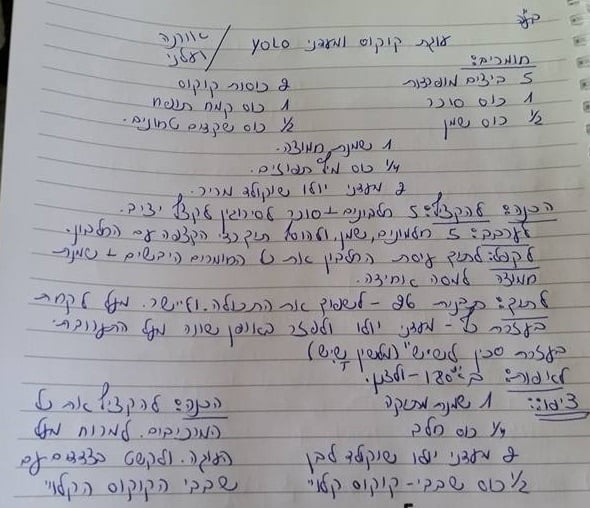 בע"ה
עוגת קוקוס ומעדני YOLO / אורנה ועלני
חומרים:
5 ביצים מופרדות
2 כוסות קוקוס
1 כוס סוכר
1 כוס קמח תופח
1/2 כוס שמן
1/2 כוס שקדים טחונים.
1 שמנת חמוצה.
1/4 כוס מיץ תפוזים.
2 מעדני יולו שוקולד מריר.
הכנה: להקציף: 5 חלבונים + סוכר לסירוגין לקצף יציב.
לערבב: 5 חלמונים, שמן, ולהוסיף תוך כדי הקצפה עם החלבון.
לקפל: לתוך עיסת החלבון את כל החומרים היבשים + שמנת
חמוצה למסה אחידה.
לתוך: תבנית 26 - לשפוך את התכולה. וליישר. מעל לקחת
בעזרת כף - מעדני יולו ולפזר באופן שונה מעל התערובת.
בעזרת סכין לשייש" (מלשון שיש)
לאפות: ב 180° - ולצנן.
ציפוי:
1 שמנת מתוקה
1/4 כוס חלב
2 מעדני יולו שוקולד לבן
1/2 כוס שבבי - קוקוס קלוי"
הכנה: להקציף את כל
המרכיבים. למרוח מעל
העוגה. ולקשט בצדדים עם
שבבי הקוקוס הקלוי"